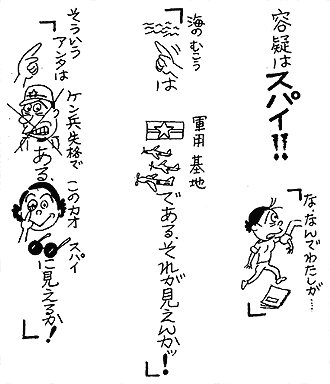 容疑はスパイ!!
「な、なんでわたしが…
」
「海のむこうは
軍用基地
である.それが見えんかッ!」
「そういうアンタは
ケン兵失格で
ある、
このカオ スパイ
に見えるか!」